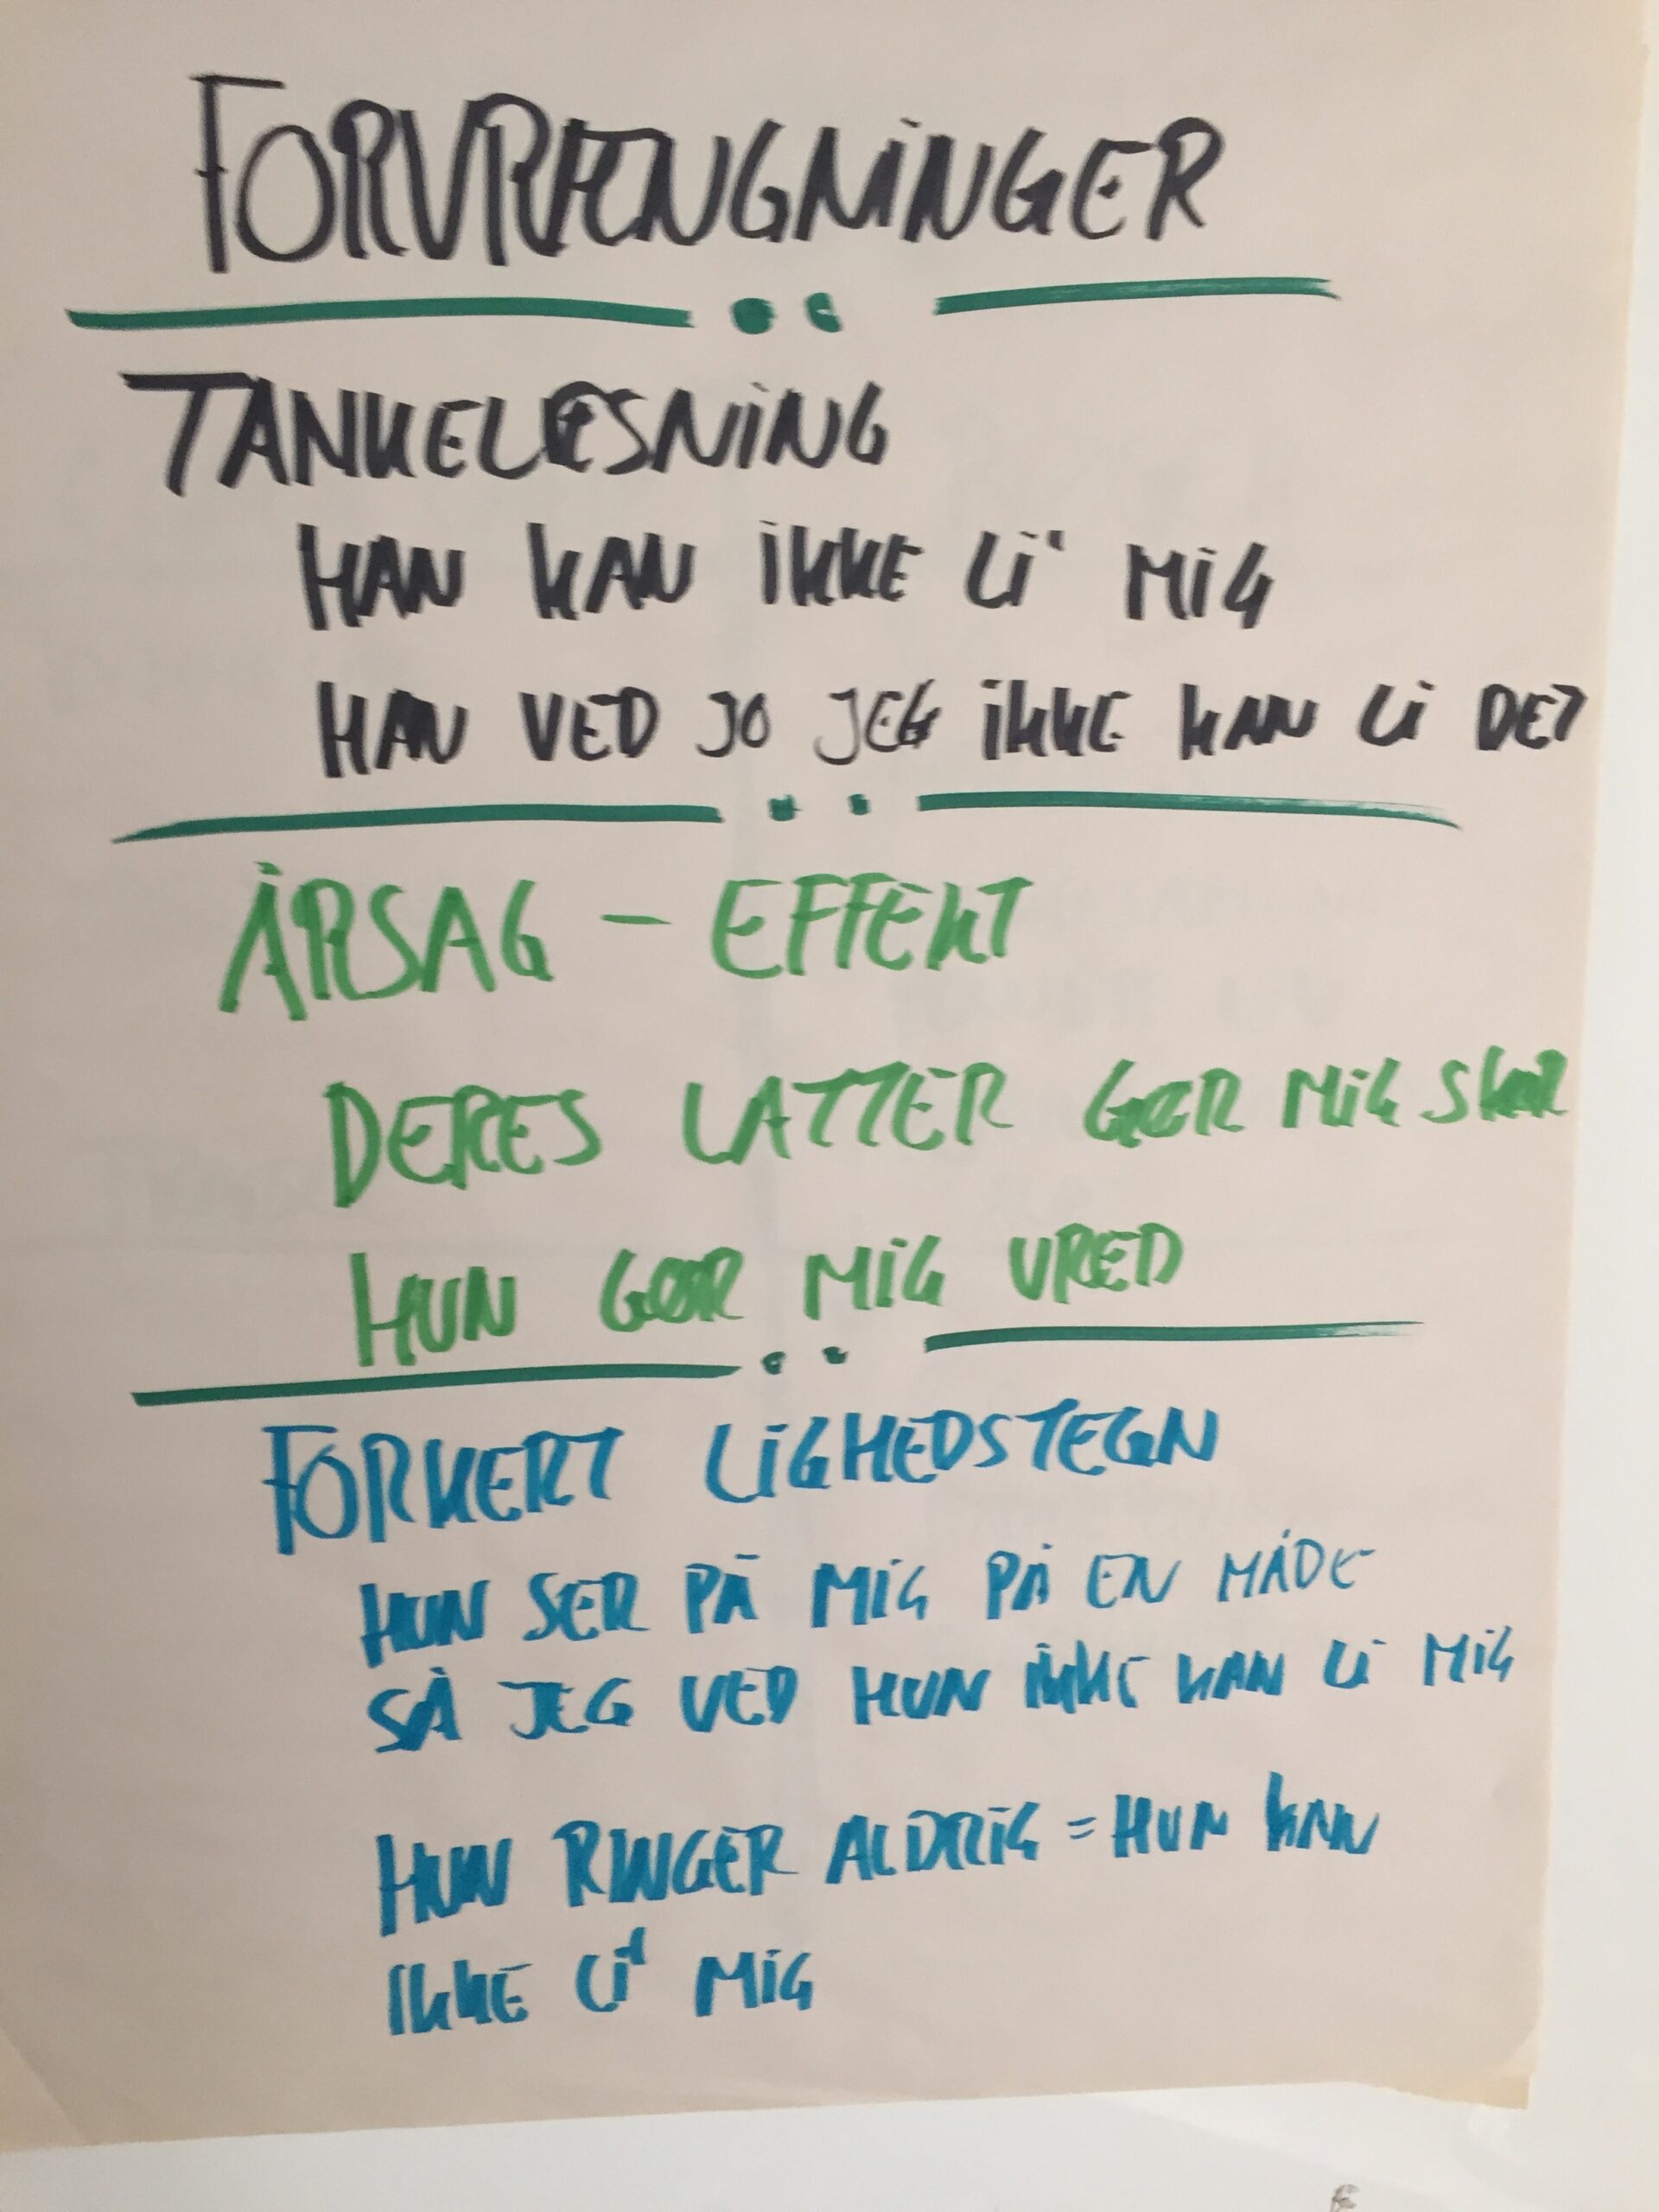 FORVRÆNGNINGER
TANKELÆSNING
HAN KAN iKKE Li' MiG
HAN VED JO JEG iKKE KAN Li DET
ÅRSAG - EFFEKT
DERES LATTER GØR MiG SKØR
HUN GØR MiG VRED
FORKERT LiGHEDSTEGN
HUN SER PÅ MiG PÅ EN MÅDE
SÅ JEG VED HUN iKKE KAN Li MiG
HUN RINGER ALDRiG = HUN KAN
IKKE Li' MiG